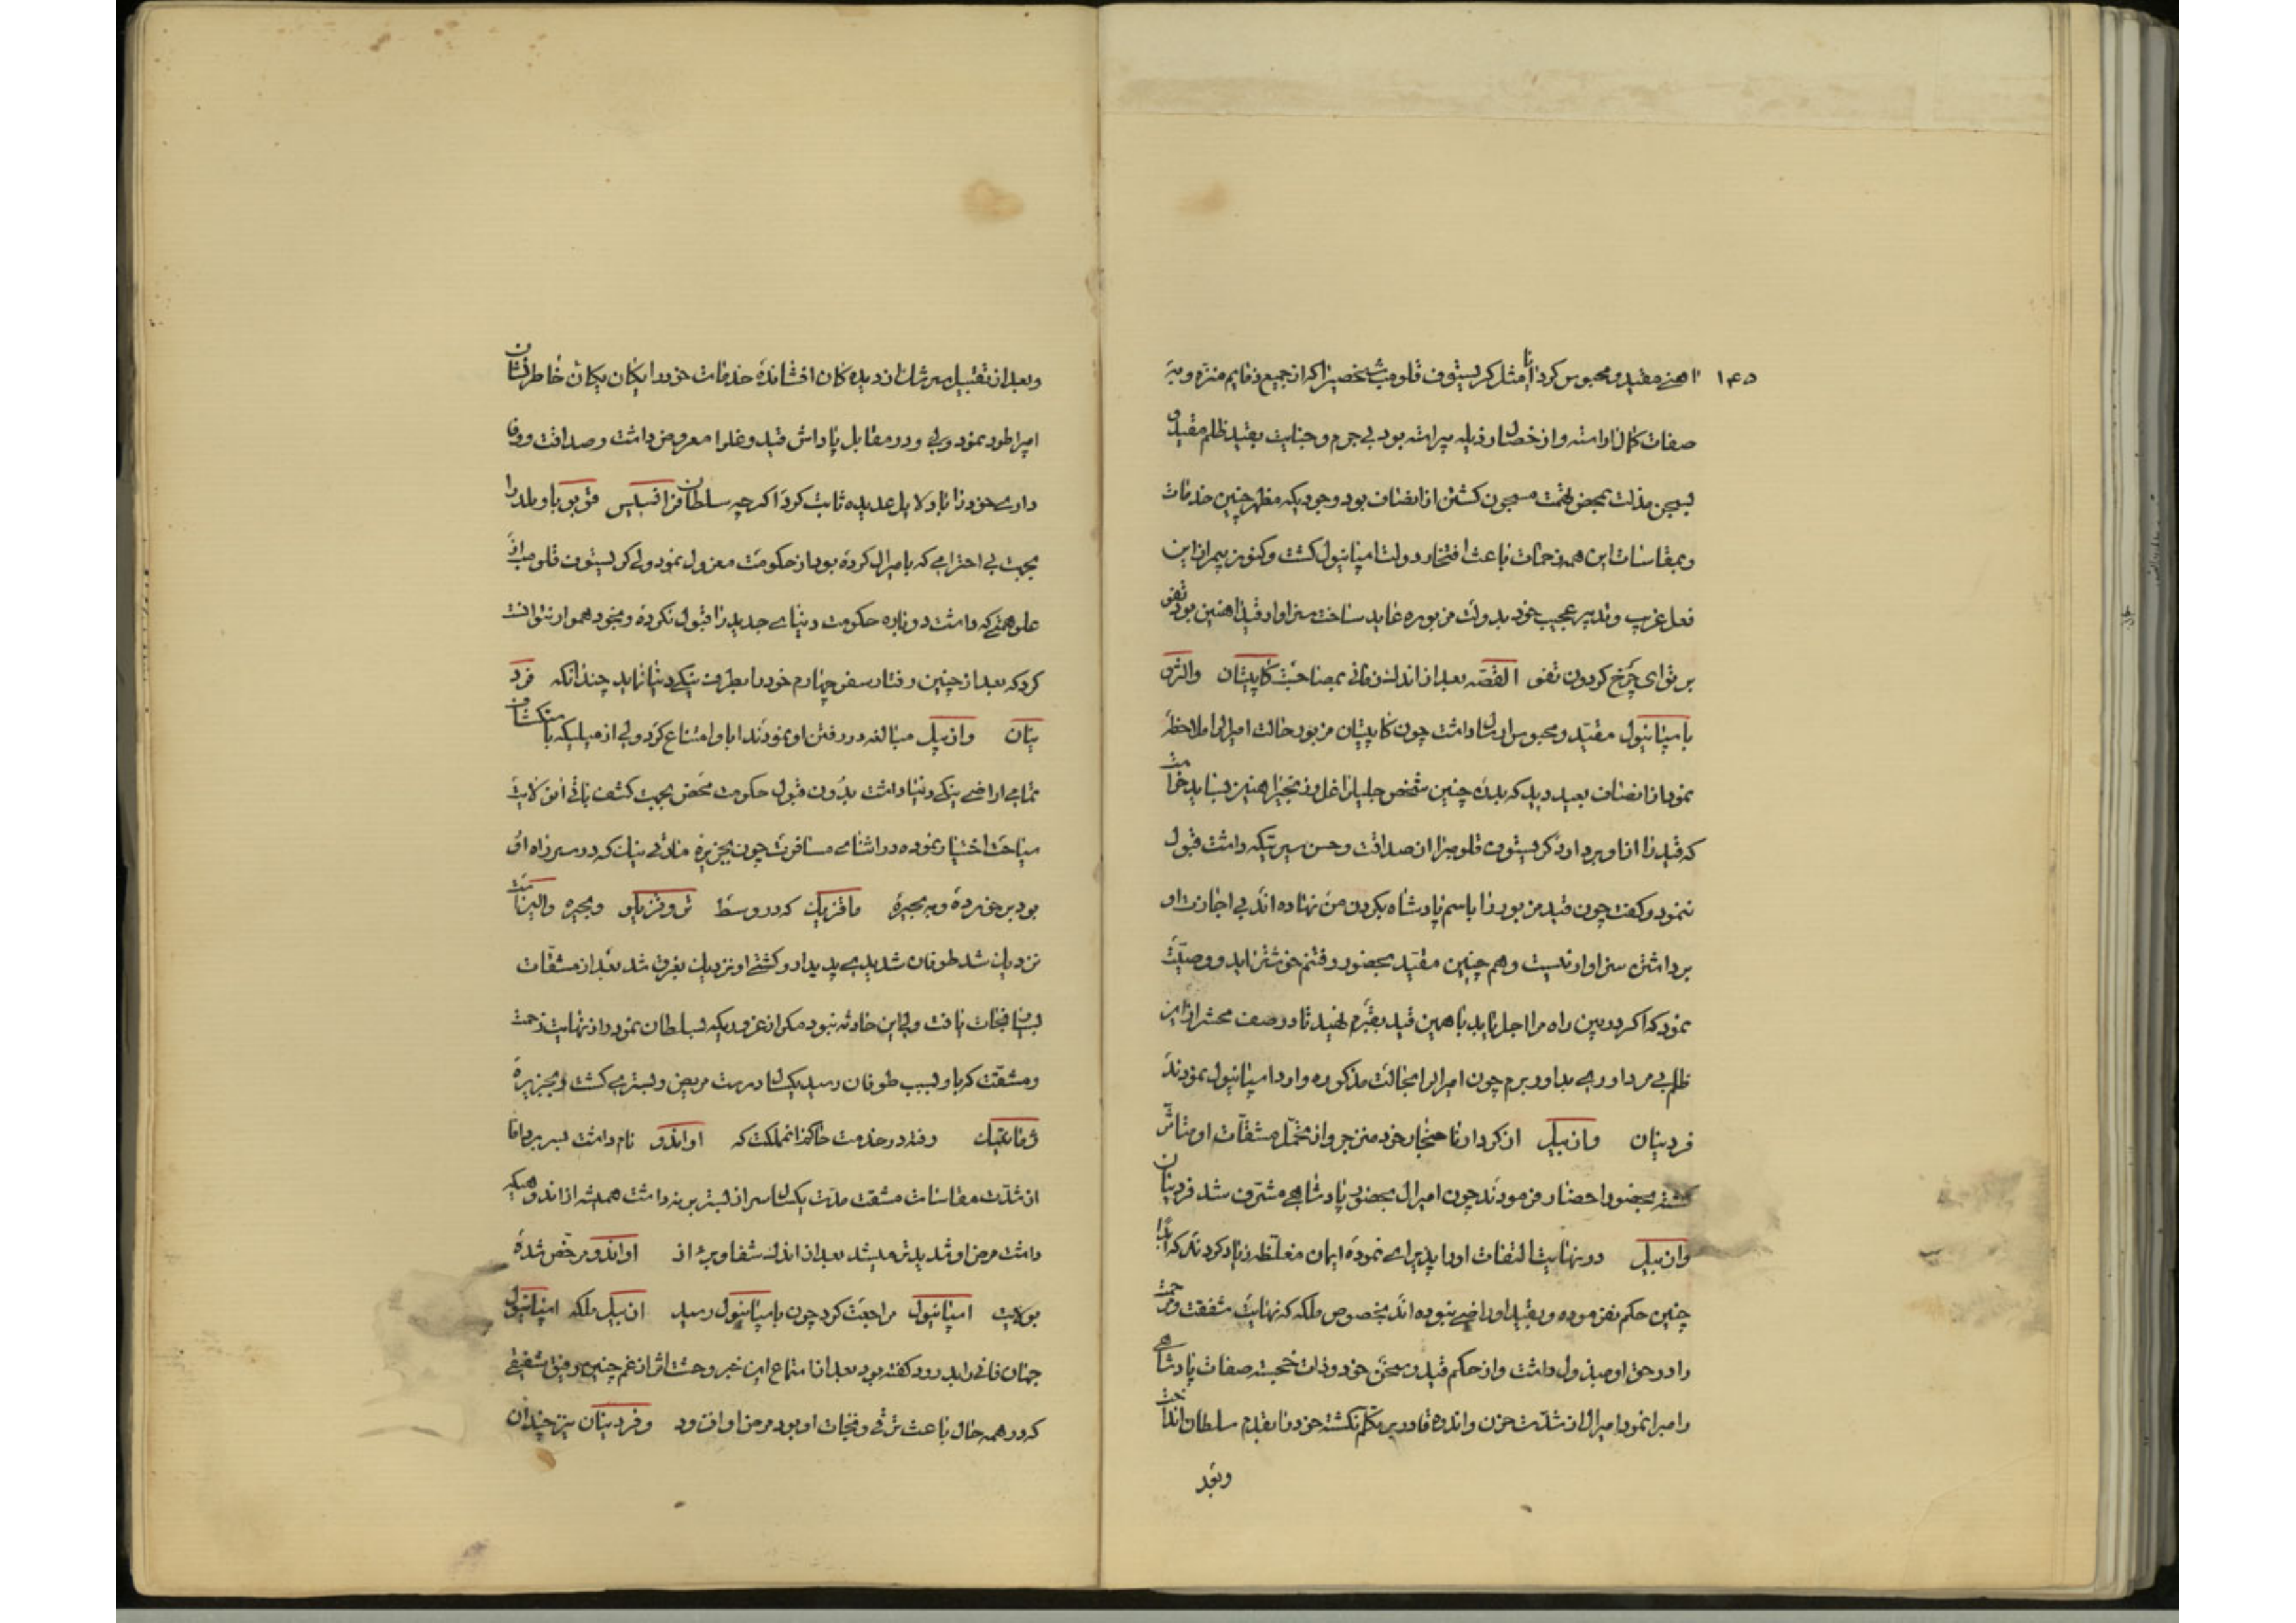 ۱۴۵
اهنی مقید و محبوس کرد اما مثل کریستوف قلومب شخصیرا که از جمیع ذمایم منزه و به
صفات کمال اراسته و از خصال رذیله پیراسته بود بی جرم و جنایت بقید ظلم مقید و
بسجن مذلت بمحض تهمت مسجون کشتن از انصاف بود وجودیکه مظهر چنین خدمات
و بمقاسات این همه زحمات باعث افتخار دولت امپانیول کشت و کنوز بیم از این
فعل غریب و تدبیر عجیب خود بدولت مزبوره عاید ساخت سزاوار قید اهنین بود تفو
بر تو ای چرخ کردون تفو القصه بعد از اندک زمانی بمصاحبت کاپیتان والژو
بامپانیول مقید و محبوس ارسال داشت چون کاپیتان مزبور حالت امیرالرا ملاحظه
نمود از انصاف بعید دید که بدبده چنین شخص جلیلرا غل و زنجیر اهنین بساید خواست
که قید را از او بردارد کریستوف قلومب از ان صداقت و حسن سیرتیکه داشت قبول
ننمود و کفت چون قید مزبور را باسم پادشاه بکردن من نهاده اند بی اجازت او
برداشتن سزاوار نیست و هم چنین مقید بحضور رفتنم خوشتر اید و وصیت
نمود که اکر در بین راه مرا اجل اید با همین قید بقبرم نهید تا در صف محشر از این
ظلم بی مر داوری بداور برم چون امیرالرا بحالت مذکوره وارد امپانیول نمودند
فردینان و ازبیل از کردار ناهنجار خود منزجر و از تحمل مشقات او متاثر
کشته بحضور احضار فرمودند چون امیرال بحضور پادشاهی مشرف شد فردینان
و ازبیل در نهایت التفات او را پذیرایی نموده ایمان مغلظه زیاد کردند که ابدا
چنین حکم نفرموده و بقید او راضی نبوده اند بخصوص ملکه که نهایت مشفقت و مرحمت
را در حق او مبذول داشت و از حکم قید و سجن خود و ذات خجسته صفات پادشاهی
را مبرا نمود امیرال از شدت حزن و اندوه قادر بر تکلم نکشته خود را بقدم سلطان انداخت
و بعد
و بعد از تقبیل سرشک از دیده کان افشانده خدمات خود را یکان یکان خاطر نشان
امپراطور نمود ولی و در مقابل پاداش قید و غلرا معروض داشت و صداقت و وفا
داری خود را با دلایل عدیده ثابت کرد اکر چه سلطان فرانسیس قوبویاویلدرا
بجهت بی احترامی که بامیرال کرده بود از حکومت معزول نمود ولی کریستوف قلومب از
علو همتی که داشت دوباره حکومت دنیای جدید را قبول نکرده و بخود هموار نتوانست
کرد که بعد از چنین رفتار سفر چهارم خود را بطرف ینکی دنیا نماید چندانکه فرد
ینان و ازبیل مبالغه در رفتن او نمودند ابا و امتناع کرد ولی از میلیکه بانکشاف
تمامی اراضی ینکی دنیا داشت بدون قبول حکومت محض بجهت کشف باقی ان ولایت
سیاحت اختیار نموده در اثنای مسافرت چون بجزیره مارتی نیک که در سر راه او
بود بر خورده و به بحیره مافزیک که در وسط و بحیره والیزنا است
نزدیک شد طوفان شدیدی پدیدار و کشتی او نزدیک بغرق شد بعد از مشقات
بسیار نجات یافت ولی این حادثه نبود مکر از غروریکه بسلطان نمود و از نهایت زحمت
و مشقت کرما و بسبب طوفان رسید یکسال درست مریض و بستری کشت و بجزیره
ژمائیک رفته در خدمت حاکم انمملکت که اواندو نام داشت بسر برد اما
از شدت مقاسات مشقت مدت یکسال سر از بستر بر نداشت همیشه از اندوهیکه
داشت مرض او شدیدتر میشد بعد از اندک شفا و برء از اواندو مرخص شده
بولایت امپانیول مراجعت کرد چون بامپانیول رسید ازبیل ملکه امپانیول
جهان فانی را بدرود کفته بود بعد از استماع این خبر وحشت اثر از غم چنین رفیق شفیقی
که در همه حال باعث ترقی و نجات او بود مرض او افزود و فردینان نیز چندان